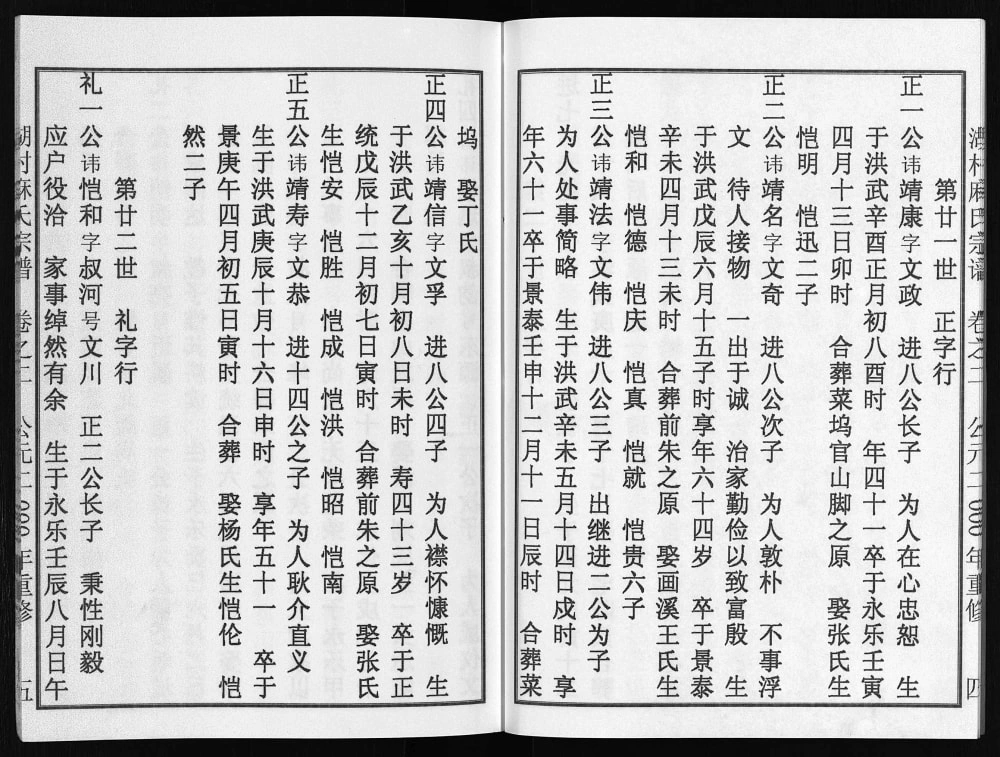 湖村麻氏宗谱 卷之二 公元二000年重修 四
第廿一世 正字行
正一公讳靖康字文政 进八公长子 为人在心忠恕 生
于洪武辛酉正月初八酉时 年四十一卒于永乐壬寅
四月十三日卯时 合葬菜坞官山脚之原 娶张氏生
恺明 恺迅二子
正二公讳靖名字文奇 进八公次子 为人敦朴 不事浮
文 待人接物 一出于诚 治家勤俭以致富殷生
于洪武戊辰六月十五子时享年六十四岁 卒于景泰
辛未四月十三未时 合葬前朱之原 娶画溪王氏生
恺和 恺德 恺庆 恺真 恺就 恺贵六子
正三公讳靖法字文伟 进八公三子 出继进二公为子
为人处事简略 生于洪武辛未五月十四日戍时 享
年六十一卒于景泰壬申十二月十一日辰时 合葬菜
坞 娶丁氏
正四公讳靖信字文孚 进八公四子 为人襟怀慷慨 生
于洪武乙亥十月初八日未时 寿四十三岁 卒于正
统戊辰十二月初七日寅时 合葬前朱之原 娶张氏
生恺安 恺胜 恺成 恺洪 恺昭 恺南
正五公讳靖寿字文恭 进十四公之子 为人耿介直义
生于洪武庚辰十月十六日申时 享年五十一 卒于
景庚午四月初五日寅时 合葬 娶杨氏生恺伦 恺
然二子
第廿二世 礼字行
礼一公讳恺和字叔河号文川 正二公长子 秉性刚毅
应户役洽 家事绰然有余 生于永乐壬辰八月日午
湖村麻氏宗谱 卷之二 公元二000年重修 五